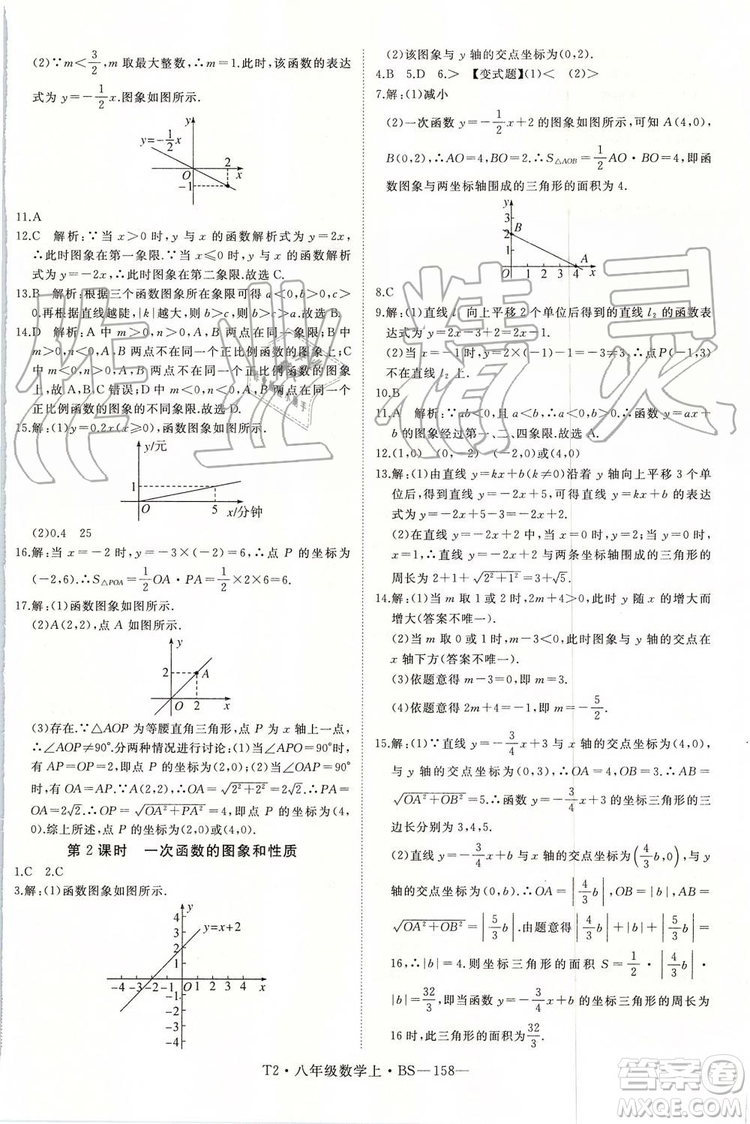 (2)∵m<3/2,m取最大整数,∴m=1.此时,该函数的表达
式为y=-1/2x.图象如图所示.
y
y=-1/2x
2
O
x
-1
11.A
12.C 解析:∵当x>0时,y与x的函数解析式为y=2x,
∴此时图象在第一象限.当x≤0时,y与x的函数解析式
为y=-2x,∴此时图象在第二象限.故选C.
13.B 解析:根据三个函数图象可得a<0,b>0,c>
0.再根据直线越陡,|k|越大,则b>c>a.故选B.
14.D 解析:A中m>0,n<0,A,B两点不在同一个象限;
B中m<0,n>0,A,B两点不在同一个正比例函数图象上;C
中m>0,n>0,A,B两点不在同一个正比例函数图象
上,故A,B,C错误;D中m<0,n<0,A,B两点在同一个
正比例函数的图象的不同象限.故选D.
15.解:(1)y=0.2x(x≥0),函数图象如图所示.
y/元
1
O
5
x/分钟
(2)0.4 25
16.解:当x=-2时,y=-3×(-2)=6,∴点P的坐标为
(-2,6).∴S△POA=1/2OA·PA=1/2×2×6=6.
17.解:(1)函数图象如图所示.
(2)A(2,2),点A如图所示.
y
2
A
O
2
x
(3)存在.∵△AOP为等腰直角三角形,点P为x轴上一点,
∴∠AOP≠90°.分两种情况进行讨论:(1)当∠APO=90°时,
P的坐标为(2,0);(2)当∠OAP=90°时,OA=√2²+2²=
2√2,∴PA=OA=2√2.∴OP=√OA²+PA²=4,即点P的坐标为(4,
0).综上所述,点P的坐标为(2,0)或(4,0).
第2课时 一次函数的图象和性质
1.C 2.C
3.解:(1)函数图象如图所示.
y
4
3
2
1
y=x+2
-4 -3 -2 -1 O 1 2 3 4 x
-1
-2
-3
-4
(2)该图象与y轴的交点坐标为(0,2).
4.B 5.D 6.> 【变式题】(1)< (2)>
7.解:(1)减小
(2)一次函数y=-1/2x+2的图象如图所示,可知A(4,0),
B(0,2),∴AO=4,BO=2.∴S△AOB=1/2AO·BO=4.即函
数图象与两坐标轴围成的三角形的面积为4.
y
3
2
B
1
O
1 2 3 4
A
x
8.C
9.解:(1)直线l₁向上平移2个单位后得到的直线l₂的函数表
达式为y=2x-3+2=2x-1.
(2)当x=-1时,y=2×(-1)-1=-3,∴点P(-1,3)
不在直线l₂上.
10.B
11.A 解析:∵ab>0,且a<b,∴a>0,b>0,∴直线y=ax+
b的图象经过第一、二、四象限.故选A.
12.(1,0) (0,2) (-2,6)
13.解:(1)由直线y=kx+b(k≠0)沿着y轴向上平移3个单
位后,得到直线y=-2x+5,可得直线y=kx+b的表达
式为y=-2x+5-3=-2x+2.
(2)在直线y=-2x+2中,当x=0时,y=2,当y=0
时,x=1,∴直线y=-2x+2与两条坐标轴围成的三角形的
周长为2+1+√2²+1²=3+√5.
14.解:(1)当m取1或2时,2m+4>0,此时y随x的增大
而增大(答案不唯一).
(2)当m取1或2时,m-3<0,此时图象与y轴的交点在
x轴下方(答案不唯一).
(3)依题意得m-3=0,即m=3.
(4)依题意得2m+4=-1,解得m=-5/2.
15.解:(1)∵直线y=-3/4x+3与x轴的交点坐标为(4,0),
与y轴的交点坐标为(0,3),∴OA=4,OB=3.∴AB=
√OA²+OB²=5.∴函数y=-3/4x+3的坐标三角形的三
边长分别为3,4,5.
(2)直线y=-3/4x+b与x轴的交点坐标为(4/3b,0),与y
轴的交点坐标为(0,b),∴OA=|4/3b|,OB=|b|,AB=
√OA²+OB²=|5/3b|.由题意可得|4/3b|+|b|+|5/3b|=
16,∴|b|=4.则坐标三角形的面积S=1/2·|4/3b|
·|b|=32/3,故当函数y=-3/4x+b的坐标三角形的周长为
16时,此三角形的面积为32/3.
T2·八年级数学上·BS—158—
作业精灵